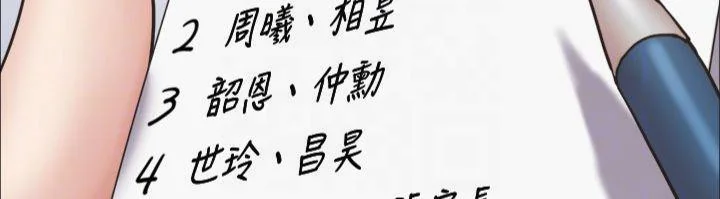 2 周曦、相昱
3 韶恩、仲勳
4 世玲、昌昊